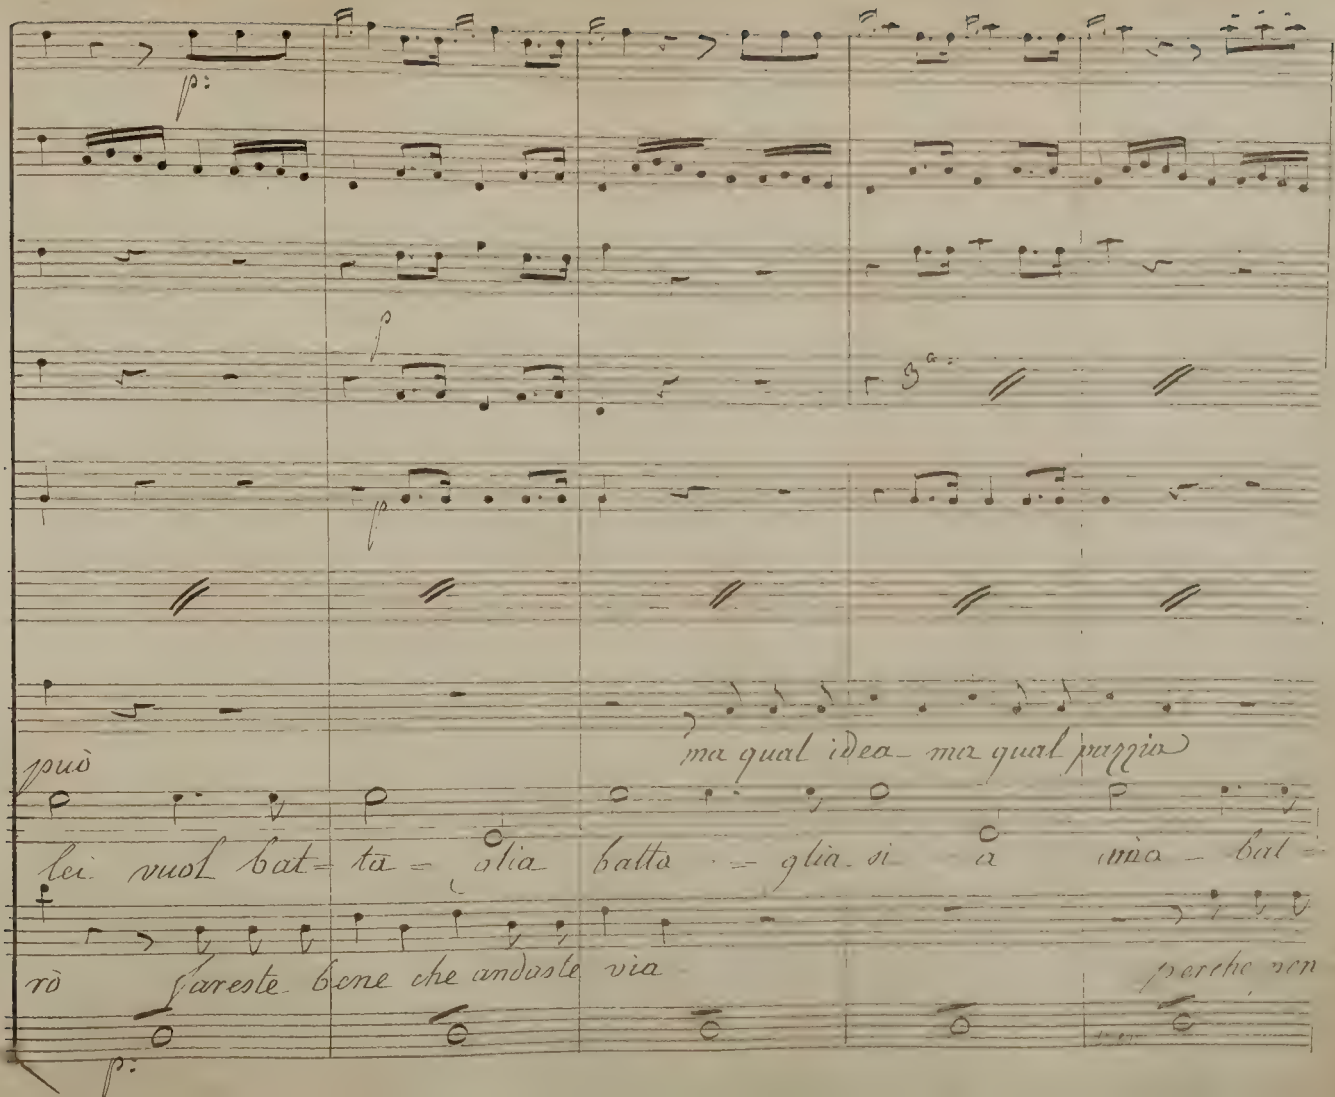 p:
p
3a:
p
può
ma qual idea ma qual pazzia
lei vuol bat-ta-glia batta-glia si a mia bat-
rò fareste bene che andaste via perche non
p: